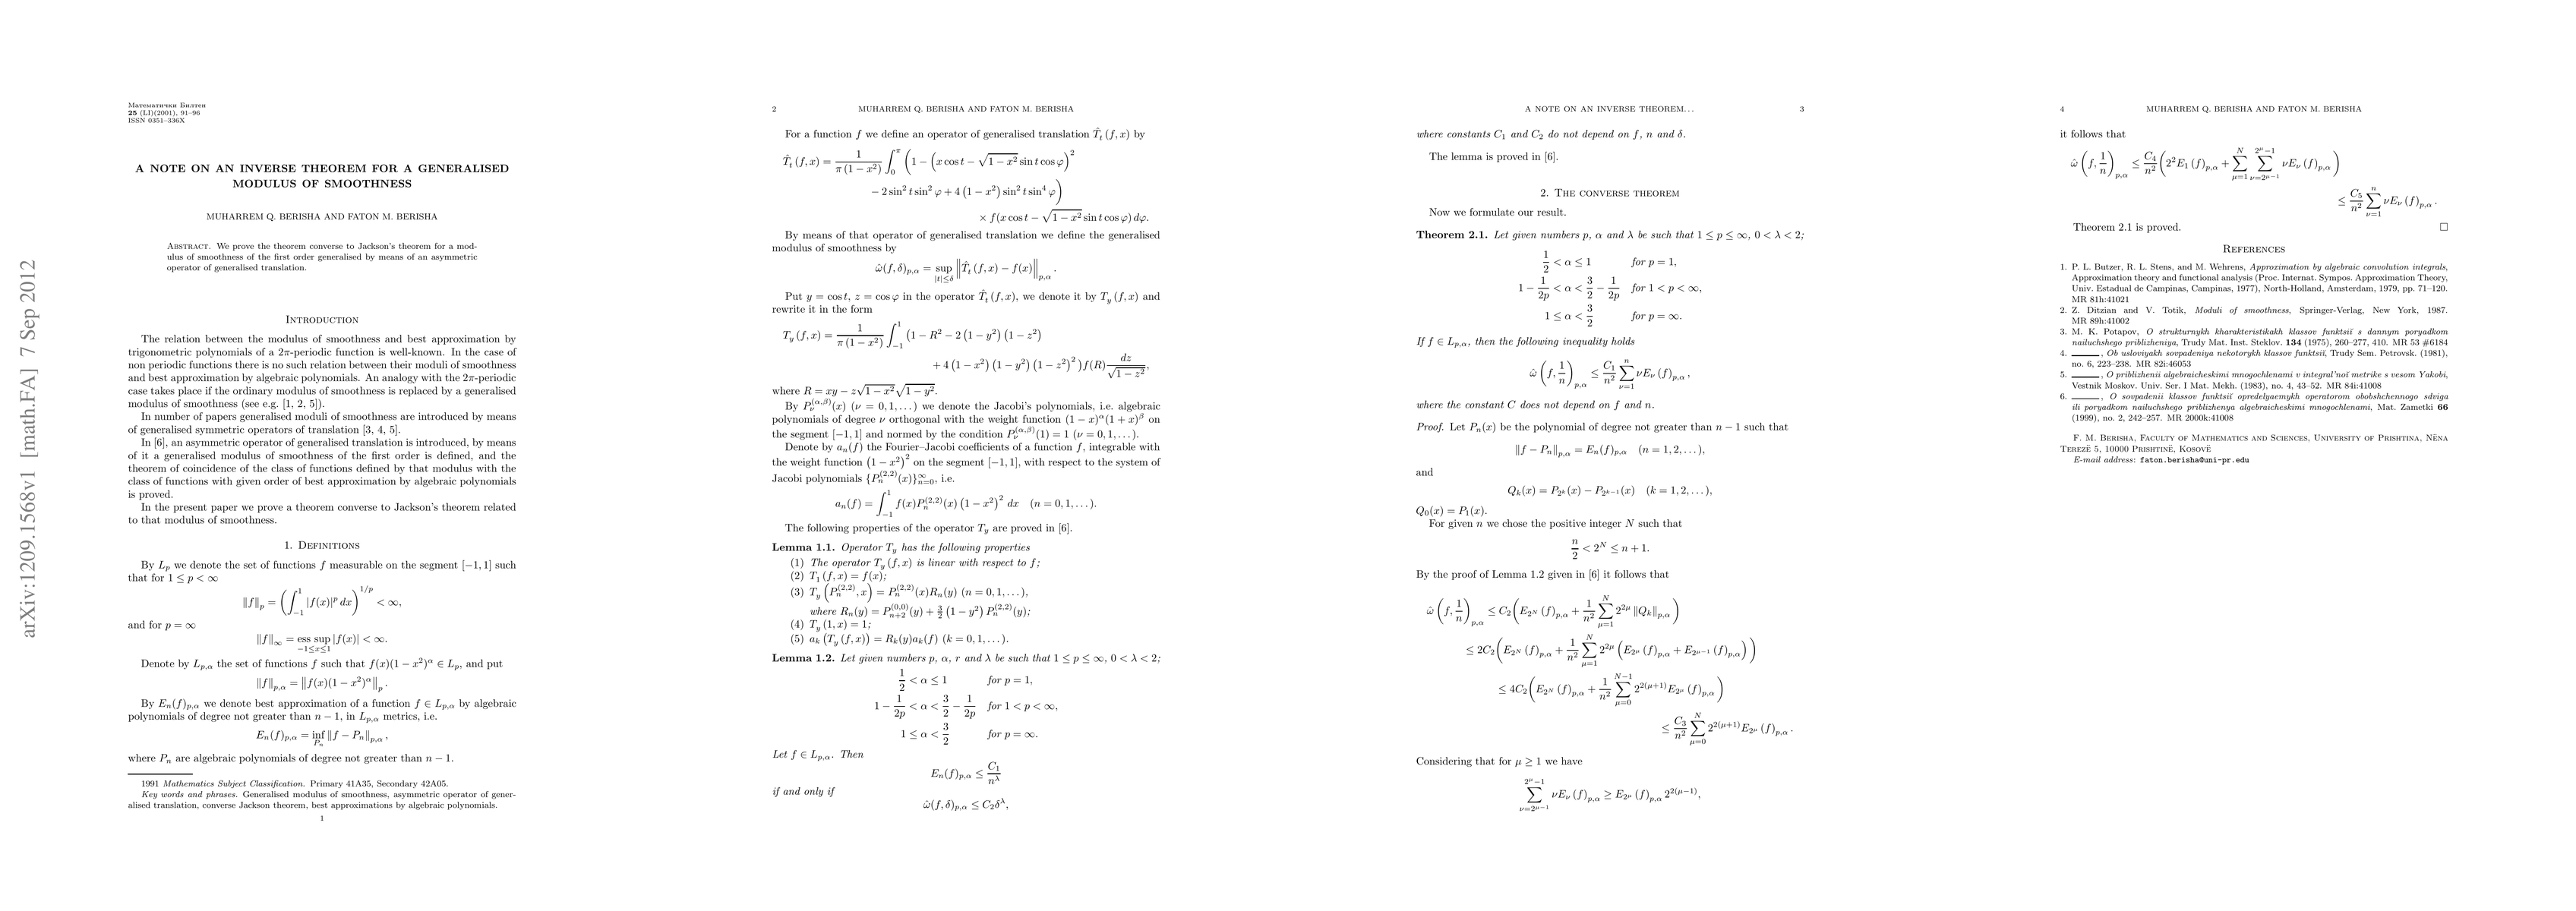 arXiv:1209.1568v1 [math.FA] 7 Sep 2012
Математички Билтен
25 (LI)(2001), 91–96
ISSN 0351–336X
A NOTE ON AN INVERSE THEOREM FOR A GENERALISED
MODULUS OF SMOOTHNESS
MUHARREM Q. BERISHA AND FATON M. BERISHA
Abstract. We prove the theorem converse to Jackson's theorem for a mod-
ulus of smoothness of the first order generalised by means of an asymmetric
operator of generalised translation.
Introduction
The relation between the modulus of smoothness and best approximation by
trigonometric polynomials of a 2π-periodic function is well-known. In the case of
non periodic functions there is no such relation between their moduli of smoothness
and best approximation by algebraic polynomials. An analogy with the 2π-periodic
case takes place if the ordinary modulus of smoothness is replaced by a generalised
modulus of smoothness (see e.g. [1, 2, 5]).
In number of papers generalised moduli of smoothness are introduced by means
of generalised symmetric operators of translation [3, 4, 5].
In [6], an asymmetric operator of generalised translation is introduced, by means
of it a generalised modulus of smoothness of the first order is defined, and the
theorem of coincidence of the class of functions defined by that modulus with the
class of functions with given order of best approximation by algebraic polynomials
is proved.
In the present paper we prove a theorem converse to Jackson's theorem related
to that modulus of smoothness.
1. Definitions
By L_p we denote the set of functions f measurable on the segment [−1, 1] such
that for 1 ≤ p < ∞
‖f‖_p = (∫_{−1}^{1} |f(x)|^p dx)^{1/p} < ∞,
and for p = ∞
‖f‖_∞ = ess sup_{−1≤x≤1} |f(x)| < ∞.
Denote by L_{p,α} the set of functions f such that f(x)(1 − x²)^α ∈ L_p, and put
‖f‖_{p,α} = ‖f(x)(1 − x²)^α‖_p .
By E_n(f)_{p,α} we denote best approximation of a function f ∈ L_{p,α} by algebraic
polynomials of degree not greater than n − 1, in L_{p,α} metrics, i.e.
E_n(f)_{p,α} = inf_{P_n} ‖f − P_n‖_{p,α} ,
where P_n are algebraic polynomials of degree not greater than n − 1.
1991 Mathematics Subject Classification. Primary 41A35, Secondary 42A05.
Key words and phrases. Generalised modulus of smoothness, asymmetric operator of gener-
alised translation, converse Jackson theorem, best approximations by algebraic polynomials.
1
2 MUHARREM Q. BERISHA AND FATON M. BERISHA
For a function f we define an operator of generalised translation T̂_t (f, x) by
T̂_t (f, x) = 1/(π (1 − x²)) ∫_0^π (1 − (x cos t − √(1 − x²) sin t cos φ)²
− 2 sin² t sin² φ + 4 (1 − x²) sin² t sin⁴ φ)
× f(x cos t − √(1 − x²) sin t cos φ) dφ.
By means of that operator of generalised translation we define the generalised
modulus of smoothness by
ω̂(f, δ)_{p,α} = sup_{|t|≤δ} ‖T̂_t (f, x) − f(x)‖_{p,α} .
Put y = cos t, z = cos φ in the operator T̂_t (f, x), we denote it by T_y (f, x) and
rewrite it in the form
T_y (f, x) = 1/(π (1 − x²)) ∫_{−1}^{1} (1 − R² − 2 (1 − y²) (1 − z²)
+ 4 (1 − x²) (1 − y²) (1 − z²)²) f(R) dz/√(1 − z²),
where R = xy − z√(1 − x²)√(1 − y²).
By P_ν^{(α,β)}(x) (ν = 0, 1, . . . ) we denote the Jacobi's polynomials, i.e. algebraic
polynomials of degree ν orthogonal with the weight function (1 − x)^α(1 + x)^β on
the segment [−1, 1] and normed by the condition P_ν^{(α,β)}(1) = 1 (ν = 0, 1, . . . ).
Denote by a_n(f) the Fourier–Jacobi coefficients of a function f, integrable with
the weight function (1 − x²)² on the segment [−1, 1], with respect to the system of
Jacobi polynomials {P_n^{(2,2)}(x)}_{n=0}^∞, i.e.
a_n(f) = ∫_{−1}^{1} f(x)P_n^{(2,2)}(x) (1 − x²)² dx (n = 0, 1, . . . ).
The following properties of the operator T_y are proved in [6].
Lemma 1.1. Operator T_y has the following properties
(1) The operator T_y (f, x) is linear with respect to f;
(2) T_1 (f, x) = f(x);
(3) T_y (P_n^{(2,2)}, x) = P_n^{(2,2)}(x)R_n(y) (n = 0, 1, . . . ),
where R_n(y) = P_{n+2}^{(0,0)}(y) + 3/2 (1 − y²) P_n^{(2,2)}(y);
(4) T_y (1, x) = 1;
(5) a_k (T_y (f, x)) = R_k(y)a_k(f) (k = 0, 1, . . . ).
Lemma 1.2. Let given numbers p, α, r and λ be such that 1 ≤ p ≤ ∞, 0 < λ < 2;
1/2 < α ≤ 1 for p = 1,
1 − 1/2p < α < 3/2 − 1/2p for 1 < p < ∞,
1 ≤ α < 3/2 for p = ∞.
Let f ∈ L_{p,α}. Then
E_n(f)_{p,α} ≤ C_1/n^λ
if and only if
ω̂(f, δ)_{p,α} ≤ C_2δ^λ,
A NOTE ON AN INVERSE THEOREM. . . 3
where constants C_1 and C_2 do not depend on f, n and δ.
The lemma is proved in [6].
2. The converse theorem
Now we formulate our result.
Theorem 2.1. Let given numbers p, α and λ be such that 1 ≤ p ≤ ∞, 0 < λ < 2;
1/2 < α ≤ 1 for p = 1,
1 − 1/2p < α < 3/2 − 1/2p for 1 < p < ∞,
1 ≤ α < 3/2 for p = ∞.
If f ∈ L_{p,α}, then the following inequality holds
ω̂ (f, 1/n)_{p,α} ≤ C_1/n² ∑_{ν=1}^{n} νE_ν (f)_{p,α} ,
where the constant C does not depend on f and n.
Proof. Let P_n(x) be the polynomial of degree not greater than n − 1 such that
‖f − P_n‖_{p,α} = E_n(f)_{p,α} (n = 1, 2, . . . ),
and
Q_k(x) = P_{2^k}(x) − P_{2^{k−1}}(x) (k = 1, 2, . . . ),
Q_0(x) = P_1(x).
For given n we chose the positive integer N such that
n/2 < 2^N ≤ n + 1.
By the proof of Lemma 1.2 given in [6] it follows that
ω̂ (f, 1/n)_{p,α} ≤ C_2 (E_{2^N} (f)_{p,α} + 1/n² ∑_{μ=1}^{N} 2^{2μ} ‖Q_k‖_{p,α})
≤ 2C_2 (E_{2^N} (f)_{p,α} + 1/n² ∑_{μ=1}^{N} 2^{2μ} (E_{2^μ} (f)_{p,α} + E_{2^{μ−1}} (f)_{p,α}))
≤ 4C_2 (E_{2^N} (f)_{p,α} + 1/n² ∑_{μ=0}^{N−1} 2^{2(μ+1)} E_{2^μ} (f)_{p,α})
≤ C_3/n² ∑_{μ=0}^{N} 2^{2(μ+1)} E_{2^μ} (f)_{p,α} .
Considering that for μ ≥ 1 we have
∑_{ν=2^{μ−1}}^{2^μ−1} νE_ν (f)_{p,α} ≥ E_{2^μ} (f)_{p,α} 2^{2(μ−1)},
4 MUHARREM Q. BERISHA AND FATON M. BERISHA
it follows that
ω̂ (f, 1/n)_{p,α} ≤ C_4/n² (2²E_1 (f)_{p,α} + ∑_{μ=1}^{N} ∑_{ν=2^{μ−1}}^{2^μ−1} νE_ν (f)_{p,α})
≤ C_5/n² ∑_{ν=1}^{n} νE_ν (f)_{p,α} .
Theorem 2.1 is proved. □
References
1. P. L. Butzer, R. L. Stens, and M. Wehrens, Approximation by algebraic convolution integrals,
Approximation theory and functional analysis (Proc. Internat. Sympos. Approximation Theory,
Univ. Estadual de Campinas, Campinas, 1977), North-Holland, Amsterdam, 1979, pp. 71–120.
MR 81h:41021
2. Z. Ditzian and V. Totik, Moduli of smoothness, Springer-Verlag, New York, 1987.
MR 89h:41002
3. M. K. Potapov, O strukturnykh kharakteristikakh klassov funktsiĭ s dannym poryadkom
nailuchshego priblizheniya, Trudy Mat. Inst. Steklov. 134 (1975), 260–277, 410. MR 53 #6184
4. ———, Ob usloviyakh sovpadeniya nekotorykh klassov funktsiĭ, Trudy Sem. Petrovsk. (1981),
no. 6, 223–238. MR 82i:46053
5. ———, O priblizhenii algebraicheskimi mnogochlenami v integral'noĭ metrike s vesom Yakobi,
Vestnik Moskov. Univ. Ser. I Mat. Mekh. (1983), no. 4, 43–52. MR 84i:41008
6. ———, O sovpadenii klassov funktsiĭ opredelyaemykh operatorom obobshchennogo sdviga
ili poryadkom nailuchshego priblizhenya algebraicheskimi mnogochlenami, Mat. Zametki 66
(1999), no. 2, 242–257. MR 2000k:41008
F. M. Berisha, Faculty of Mathematics and Sciences, University of Prishtina, Nëna
Terezë 5, 10000 Prishtinë, Kosovë
E-mail address: faton.berisha@uni-pr.edu